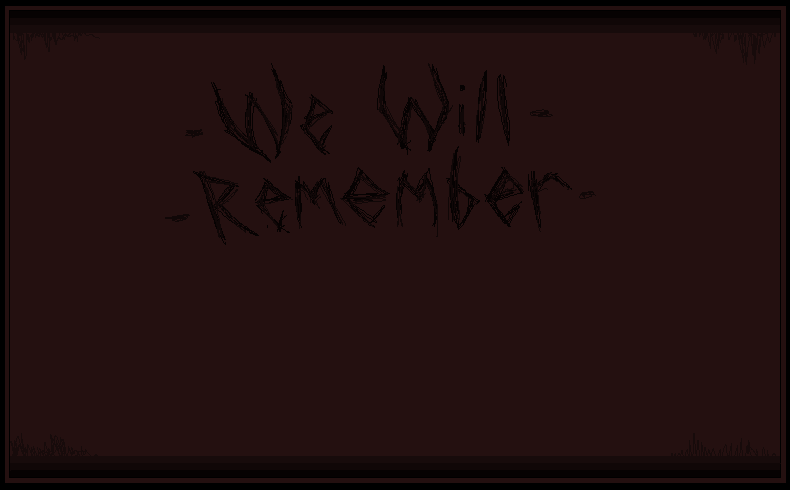 - We Will -
- Remember -